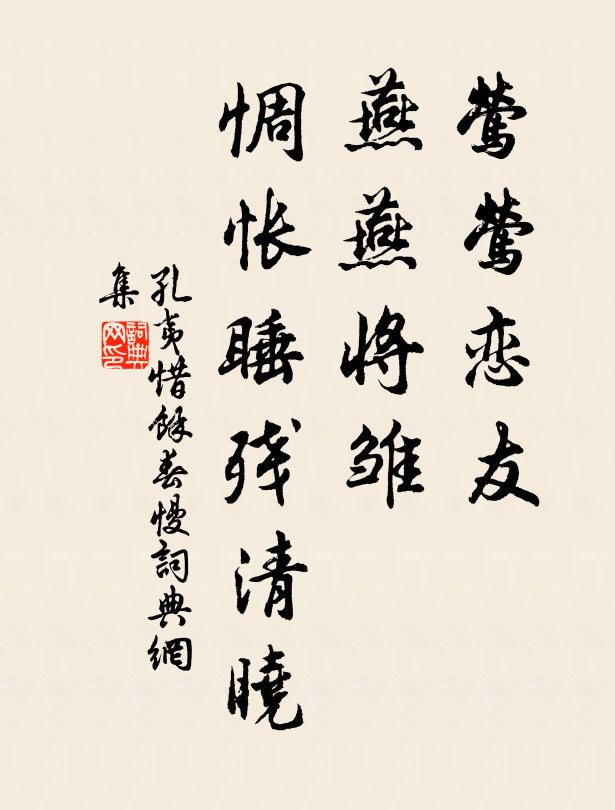 莺莺恋友
燕燕将雏
惆怅睡残清晓
孔夷惜馀春慢詞典網
集
詞典网印